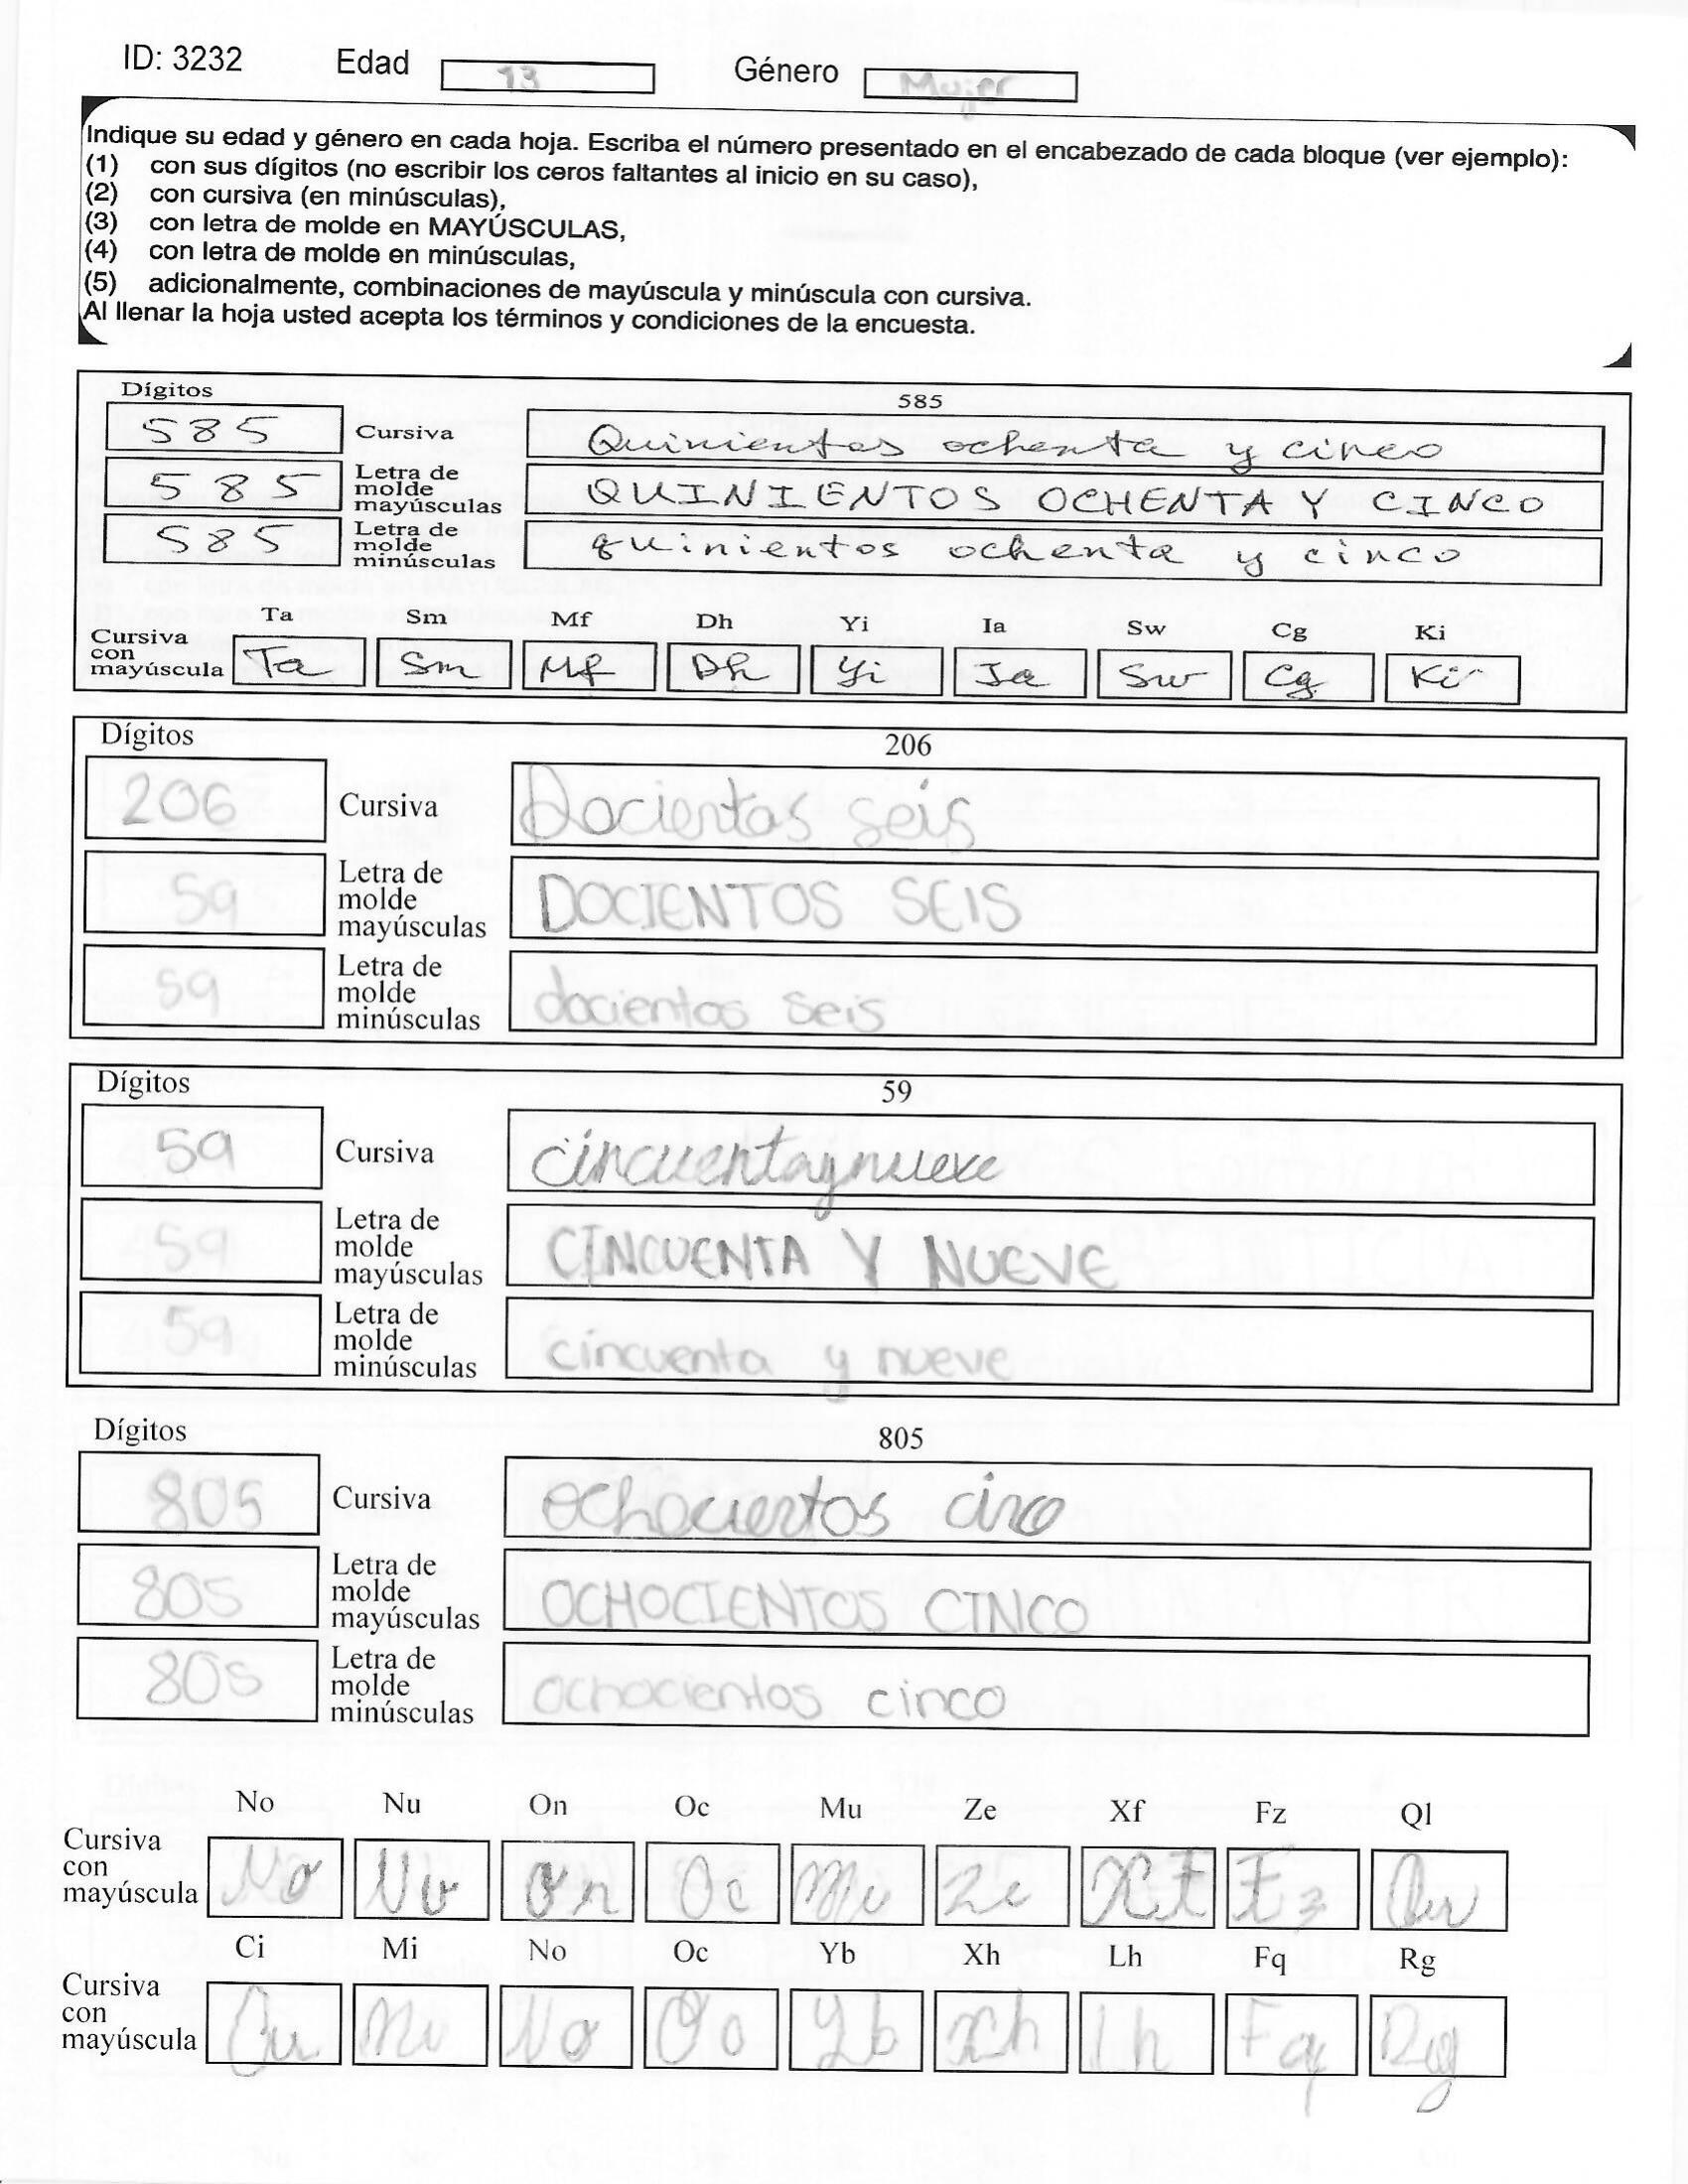 ID: 3232 Edad 13 Género Mujer
Indique su edad y género en cada hoja. Escriba el número presentado en el encabezado de cada bloque (ver ejemplo):
(1) con sus dígitos (no escribir los ceros faltantes al inicio en su caso),
(2) con cursiva (en minúsculas),
(3) con letra de molde en MAYÚSCULAS,
(4) con letra de molde en minúsculas,
(5) adicionalmente, combinaciones de mayúscula y minúscula con cursiva.
Al llenar la hoja usted acepta los términos y condiciones de la encuesta.
Dígitos 585
585 Cursiva Quinientos ochenta y cinco
585 Letra de molde mayúsculas QUINIENTOS OCHENTA Y CINCO
585 Letra de molde minúsculas quinientos ochenta y cinco
Ta Sm Mf Dh Yi Ia Sw Cg Ki
Cursiva con mayúscula Ta Sm Mf Dh Yi Ia Sw Cg Ki
Dígitos 206
206 Cursiva Docientos seis
59 Letra de molde mayúsculas DOCIENTOS SEIS
59 Letra de molde minúsculas docientos seis
Dígitos 59
59 Cursiva cincuentaynueve
59 Letra de molde mayúsculas CINCUENTA Y NUEVE
59 Letra de molde minúsculas cincuenta y nueve
Dígitos 805
805 Cursiva ochocientos cinco
805 Letra de molde mayúsculas OCHOCIENTOS CINCO
805 Letra de molde minúsculas ochocientos cinco
No Nu On Oc Mu Ze Xf Fz Ql
Cursiva con mayúscula No Nu On Oc Mu Ze Xf Fz
Ci Mi No Oc Yb Xh Lh Fq Rg
Cursiva con mayúscula Mi No Oo Yb Xh Lh Fq Rg